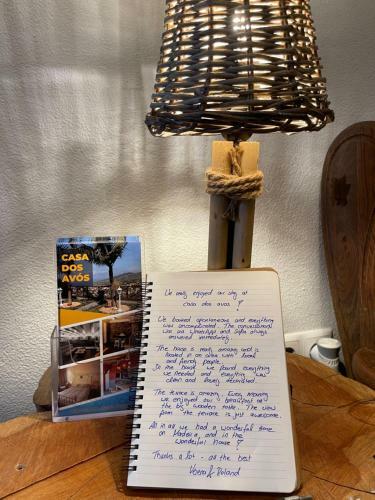 CASA
DOS
AVÓS
We really enjoyed our stay at
casa dos avos !
We booked spontaneous and everything
was uncomplicated. The conversational
was via WhatsApp and Sofia always
answered immediately.
The house is really amazing and is
located in an area with local
and friendly people.
In the house we found everything
we needed and everything was
clean and lovely decorated.
The terrace is amazing. Every morning
we enjoyed our breakfast at
the big wooden table. The view
from the terrace is just awesome.
All in all we had a wonderful time
on Madeira, and in the
wonderful house !
Thanks a lot - all the best
Roland